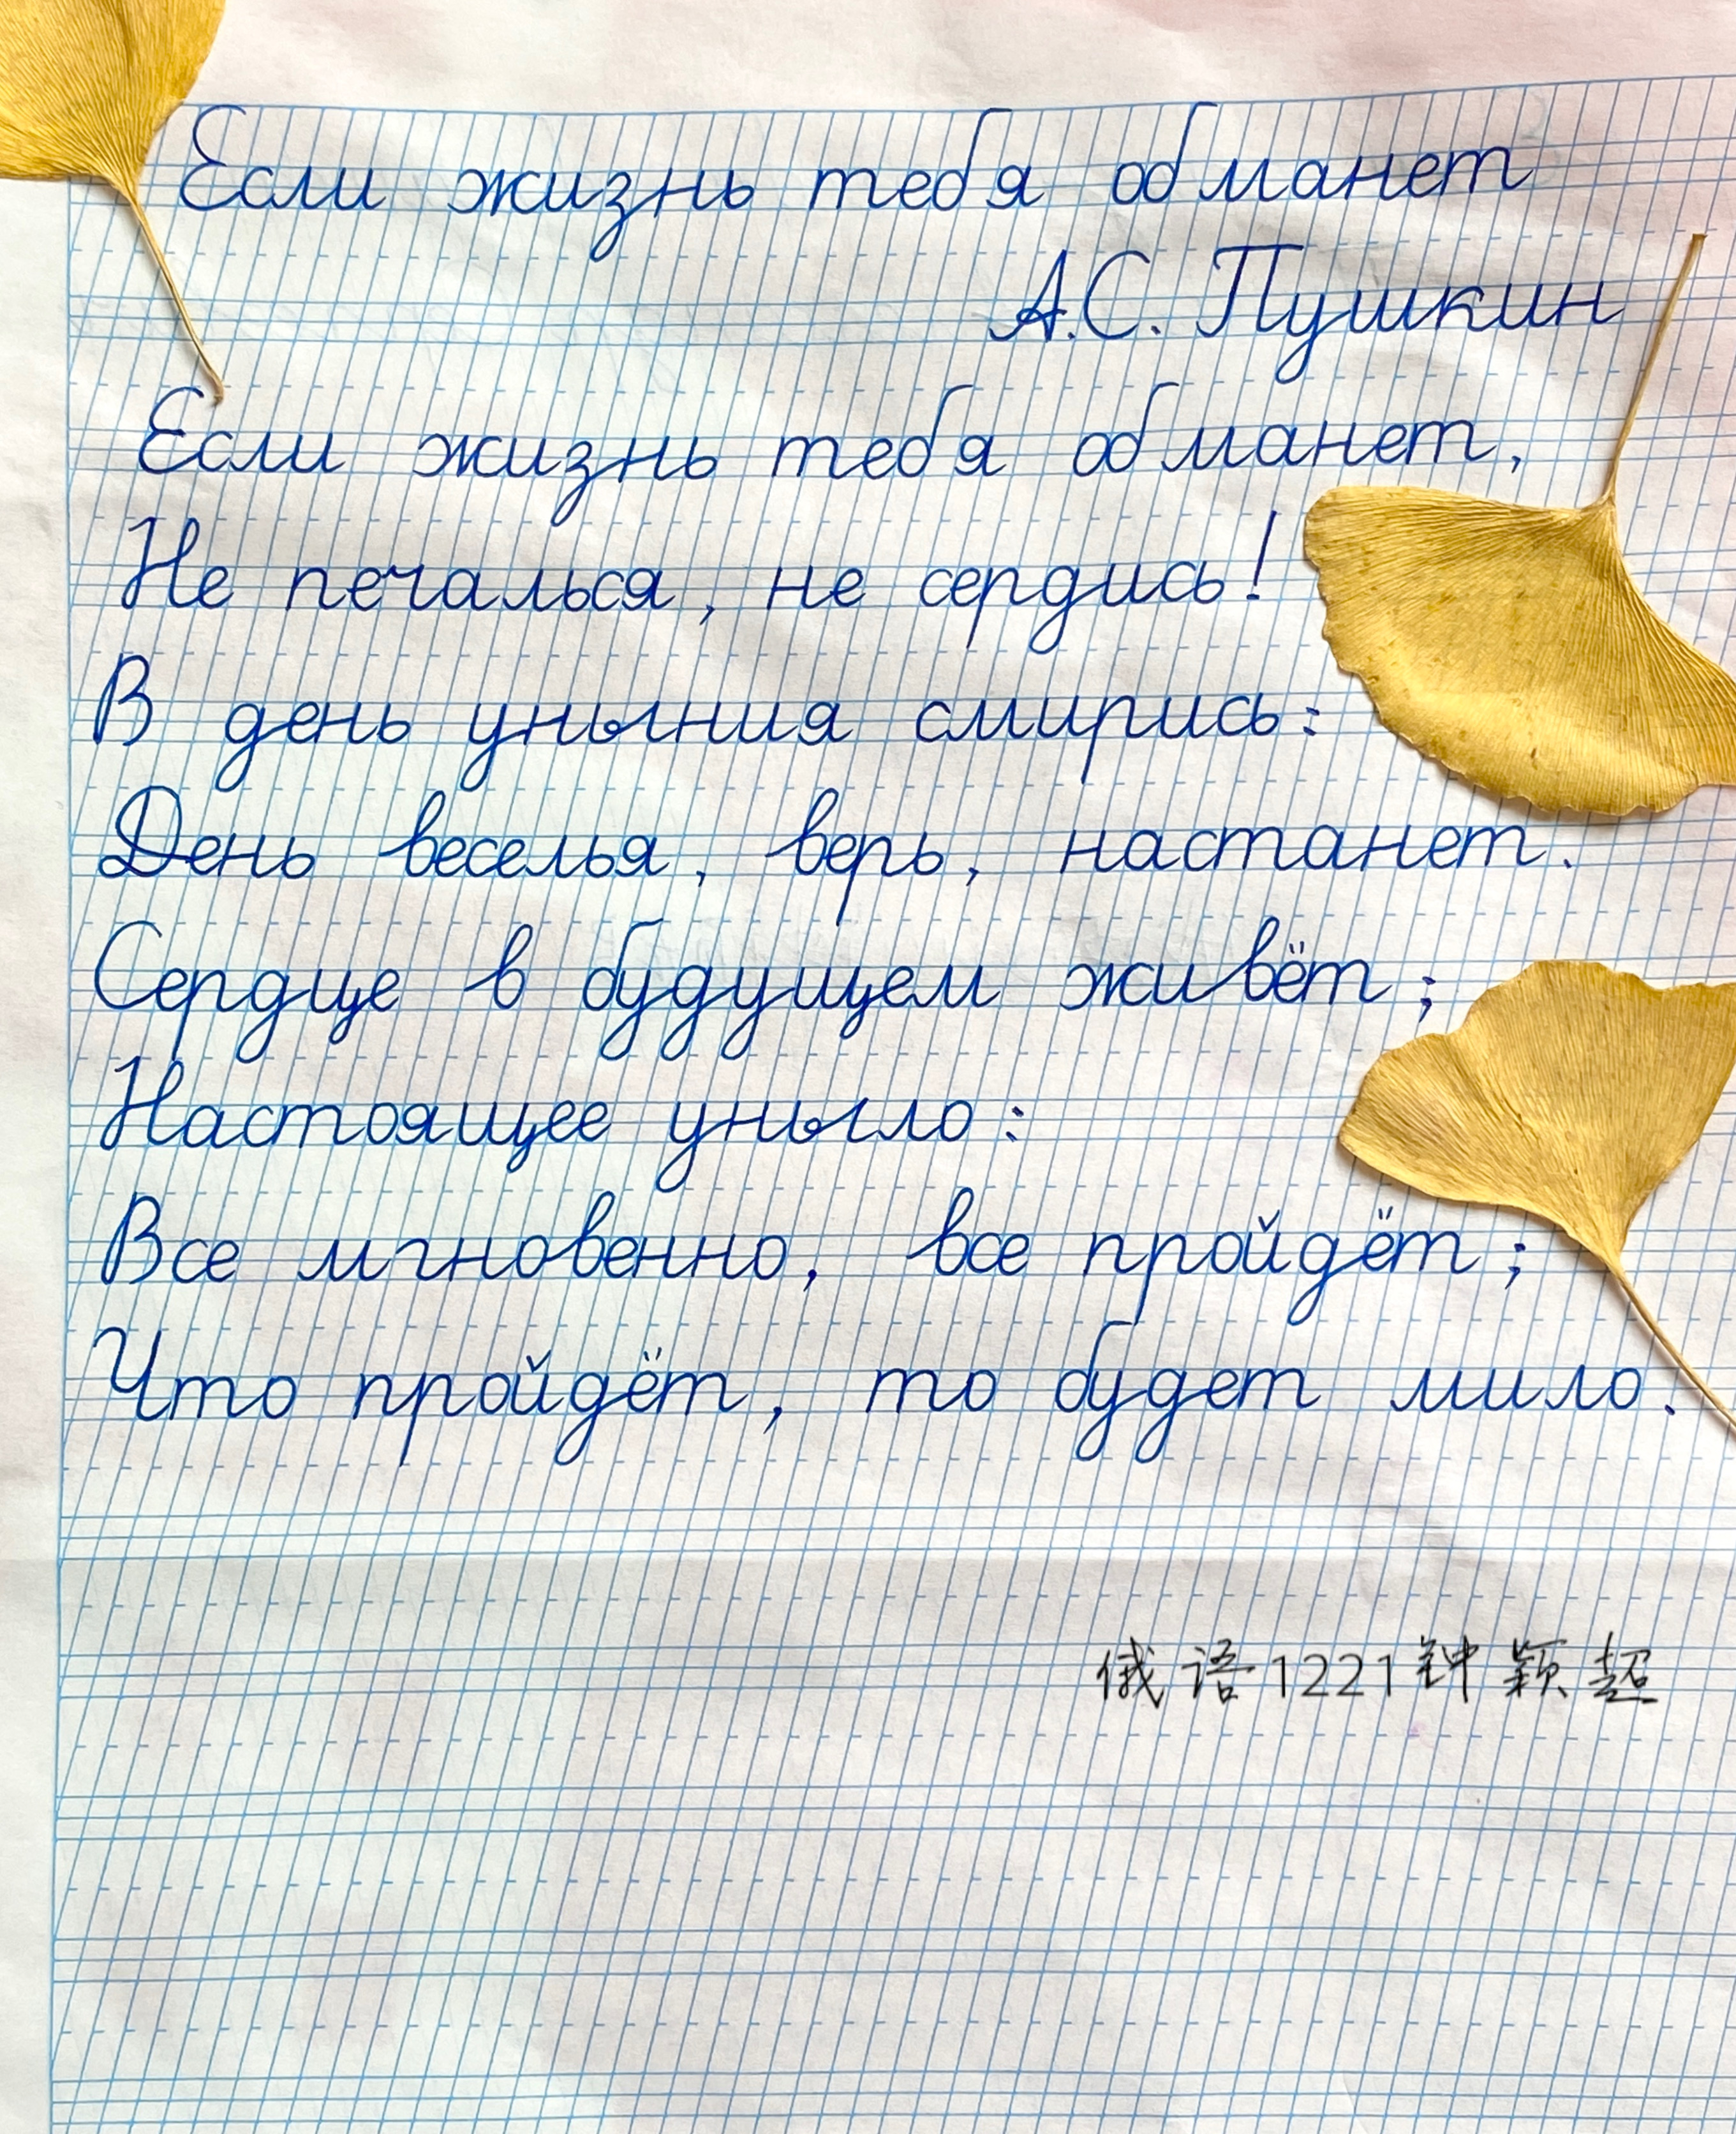 Если жизнь тебя обманет
А.С. Пушкин
Если жизнь тебя обманет,
Не печалься, не сердись!
В день уныния смирись:
День веселья, верь, настанет.
Сердце в будущем живёт;
Настоящее уныло:
Все мгновенно, все пройдёт;
Что пройдёт, то будет мило.
俄语1221钟颖超